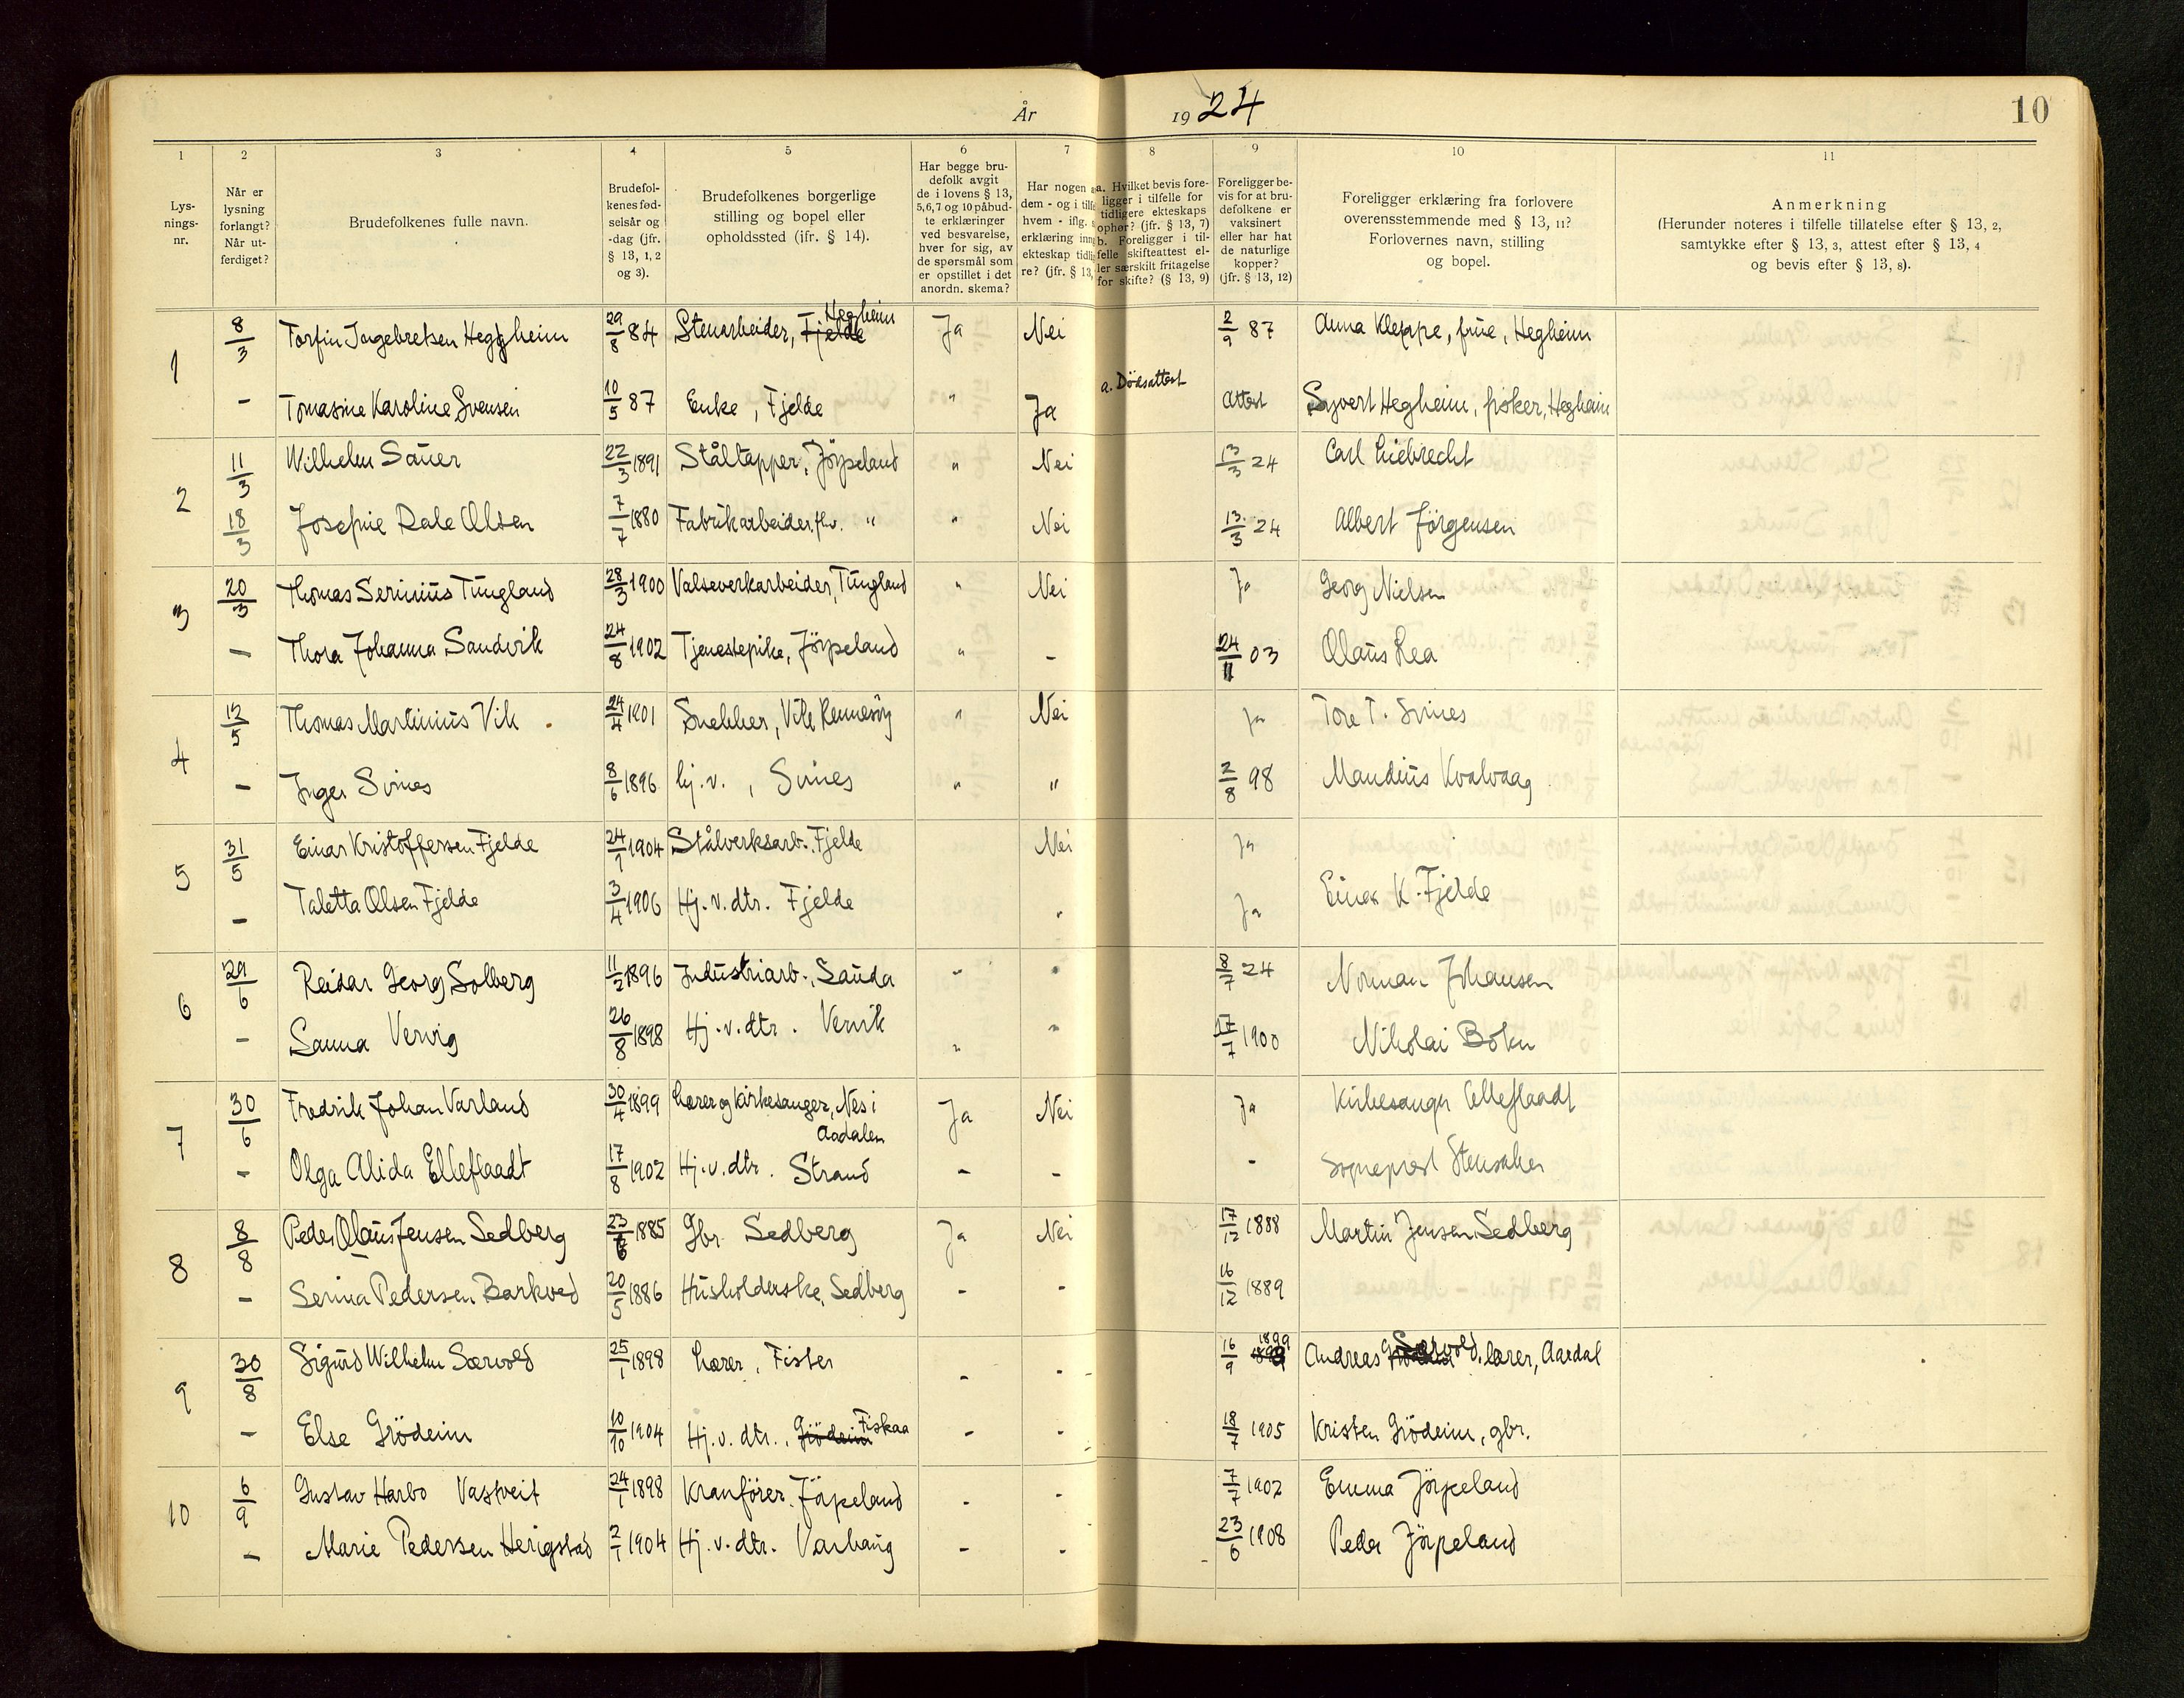 År 1924
10
1
2
3
4
5
6
7
8
9
10
11
Lys-
nings-
nr.
Når er
lysning
forlangt?
Når ut-
ferdiget?
Brudefolkenes fulle navn.
Brudefol-
kenes fød-
selsår og
-dag (jfr.
§ 13, 1, 2
og 3).
Brudefolkenes borgerlige
stilling og bopel eller
opholdssted (ifr. § 14).
Har begge bru-
defolk avgit
de i lovens § 13,
5,6,7 og 10 påbud-
te erklæringer
ved besvarelse,
hver for sig, av
de spørsmål som
er opstillet i det
anordn. skema?
Har nogen a
dem - og i tilf
hvem - iflg.
erklæring inn
ekteskap tidli
re? (jfr. § 13,
a. Hvilket bevis fore-
ligger i tilfelle for
tidligere ekteskaps
ophør? (jfr. § 13, 7)
b. Foreligger i til-
felle skifteattest el-
ler særskilt fritagelse
for skifte? (§ 13, 9)
Foreligger be-
vis for at bru-
defolkene er
vaksinert
eller har hat
de naturlige
kopper?
(jfr. § 13, 12)
Foreligger erklæring fra forlovere
overensstemmende med § 13, 11?
Forlovernes navn, stilling
og bopel.
Anmerkning
(Herunder noteres i tilfelle tillatelse efter § 13, 2,
samtykke efter § 13, 3, attest efter § 13, 4
og bevis efter § 13, 8).
1 8/3 Torfin Ingebretsen Heggheim 29/8 84 Stenarbeider, Fjelde Hegheim Ja Nei 2/9 87 Anna Kleppe, frue, Hegheim
- Tomasine Karoline Svensen 10/5 87 Enke, Fjelde " Ja a. Dödsattest Attest Syvert Hegheim, fisker, Hegheim
2 11/3 Wilhelm Sauer 22/3 1891 Ståltapper, Jörpeland " Nei 13/3 24 Carl Liebrecht
18/3 Josefine Dale Olsen 7/7 1880 Fabrikarbeider.fhv. " " Nei 13/3 24 Albert Jörgensen
3 20/3 Thomas Serinius Tungland 28/3 1900 Valseverkarbeider, Tungland " Nei Ja Georg Nielsen
- Thora Johanna Sandvik 24/8 1902 Tjenestepike, Jörpeland " - 24/11 03 Olaus Lea
4 12/5 Thomas Martinius Vik 24/4 1901 Snekker, Vik Rennesöy " Nei Ja Tore T. Svines
- Inger Svines 8/6 1896 hj.v., Svines " " 2/8 98 Maudius Kvalvaag
5 31/5 Einar Kristoffersen Fjelde 24/1 1904 Stålverksarb. Fjelde Nei Ja
- Taletta Olsen Fjelde 3/4 1906 Hj.v.dtr. Fjelde " Ja Einar K. Fjelde
6 29/6 Reidar Georg Solberg 11/2 1896 Industriarb., Sauda " " 8/7 24 Norman Johansen
- Sanna Vervig 26/8 1898 Hj.v.dtr. Vervik " " 17/7 1900 Nikolai Bokn
7 30/6 Fredrik Johan Varland 30/4 1899 Lærer og kirkesanger, Nes i Aadalen Ja Nei Ja Kirkesanger Elleflaadt
- Olga Alida Elleflaadt 17/8 1902 Hj.v.dtr. Strand - - - Sogneprest Stensaker
8 8/8 Peder Olaus Jensen Sedberg 23/6 1885 Gbr Sedberg Ja Nei 17/12 1888 Martin Jensen Sedberg
- Serina Pedersen Barkved 20/5 1886 Husholderske, Sedberg - - 16/12 1889
9 30/8 Sigurd Wilhelm Sørvold 25/1 1898 Lærer, Fister - - 16/9 1899 Andreas Sørvold, lærer, Aardal
- Else Grödeim 10/10 1904 Hj.v.dtr., Grödeim Fiskaa - - 18/7 1905 Kristen Grödeim, gbr.
10 6/9 Gustav Harbo Vastveit 24/1 1898 Kranförer. Jörpeland - - 7/7 1902 Emma Jörpeland
- Marie Pedersen Herigstad 2/1 1904 Hj.v.dtr. Varhaug - - 23/6 1908 Peder Jörpeland